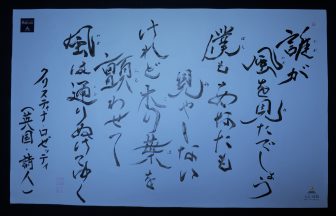 誰が
風を見たでしょう
僕もあなたも
見やしない
けれど木の葉を
顫わせて
風は通りぬけてゆく
クリスティナ ロゼッティ
(英国・詩人)